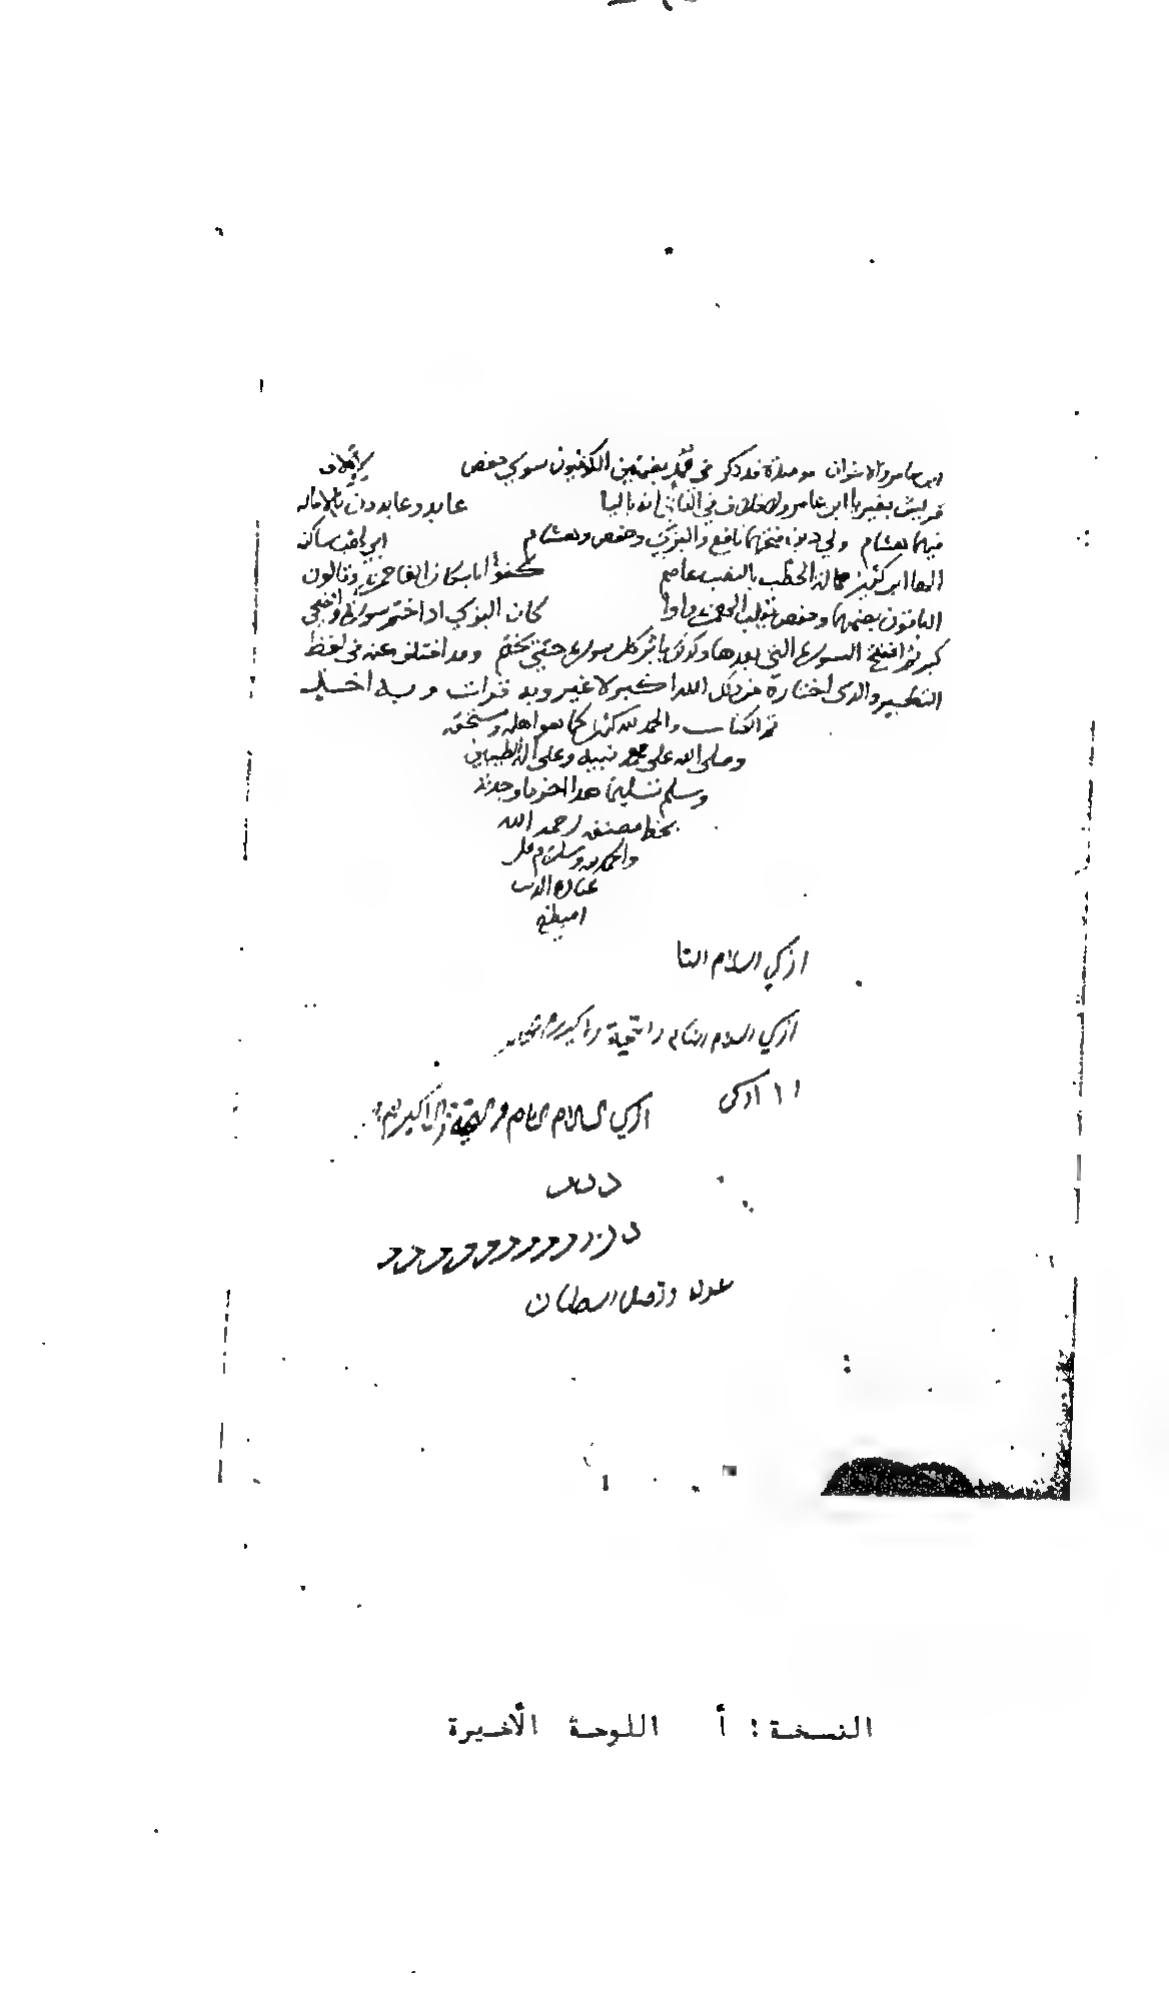 ابن عامر والاخوان موصدة قد ذكر في عمد بضمتين الكوفيون سوى حفص لإيلاف
قريش بغير يا ابن عامر ولا خلاف في الثاني انه باليا عابد وعابدون بالاماله
فيهما هشام ولي دين فتحها نافع والبزي وحفص وهشام ابي لهب ساكنة
الها ابن كثير حمالة الحطب بالنصب عاصم كفوا
الباقون بضمهما وحفص كان البزي اذا ختم سورة والضحى
كبر ثم افتتح السورة التي بعدها وكذلك باثر كل سورة حتى يختم وقد اختلف عنه في لفظ
التكبير والذي اختاره من ذلك الله اكبر لا غير وبه قرات وبه اخذ
تم الكتاب والحمد لله كثيرا كما هو اهله ومستحقه
وصلى الله على محمد نبيه وعلى اله الطيبين
وسلم تسليما هذا اخر ما وجدته
بخط مصنفه رحمه الله
والحمد لله وسلام على
عباده الذين
اصطفى
ازكي السلام التا
ازكي السلام التام والتحية والاكرام
ا ا ازكى
ازكي السلام التام والتحية والاكرام
السلطان
النسخة : أ اللوحة الأخيرة